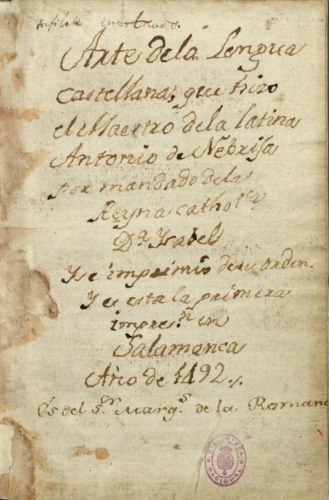 Arte de la Lengua
Castellana, que hizo
el Maestro de la latina
Antonio de Nebrisa
por mandado de la
Reyna cathol.ca
D.a Ysabel
Y se imprimió de su orden.
Y es esta la primera
impres.n en
Salamanca
Año de 1492.
Es del S.or Marq.s de la Romana